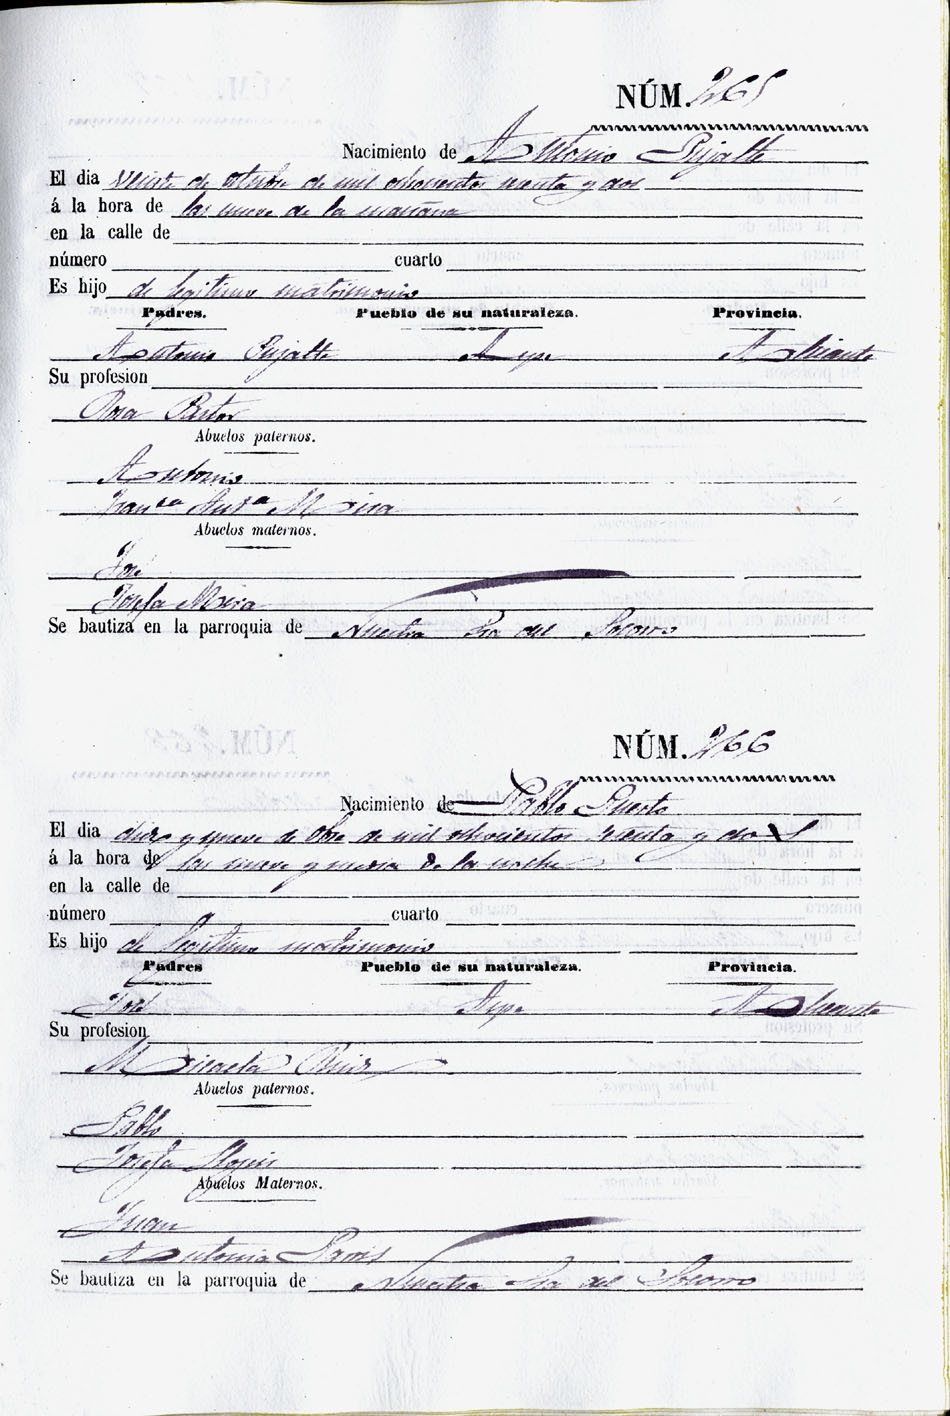 NÚM. 265
Nacimiento de Antonio Pujalte
El dia veinte de otubre de mil ochocientos noventa y dos
á la hora de las nueve de la mañana
en la calle de
número cuarto
Es hijo de legitimo matrimonio
Padres. Pueblo de su naturaleza. Provincia.
Antonio Pujalte Aspe Alicante
Su profesion
Rosa Pastor
Abuelos paternos.
Antonio
Franca Anta Mira
Abuelos maternos.
José
Josefa Mira
Se bautiza en la parroquia de Nuestra Sra del Socorro
NÚM. 266
Nacimiento de Pablo Puerto
El dia diez y nueve de Obre de mil ochocientos noventa y dos
á la hora de las nueve y media de la noche
en la calle de
número cuarto
Es hijo de legitimo matrimonio
Padres Pueblo de su naturaleza. Provincia.
José Aspe Alicante
Su profesion
Micaela
Abuelos paternos.
Pablo
Josefa
Abuelos Maternos.
Juan
Antonia
Se bautiza en la parroquia de Nuestra Sra del Socorro